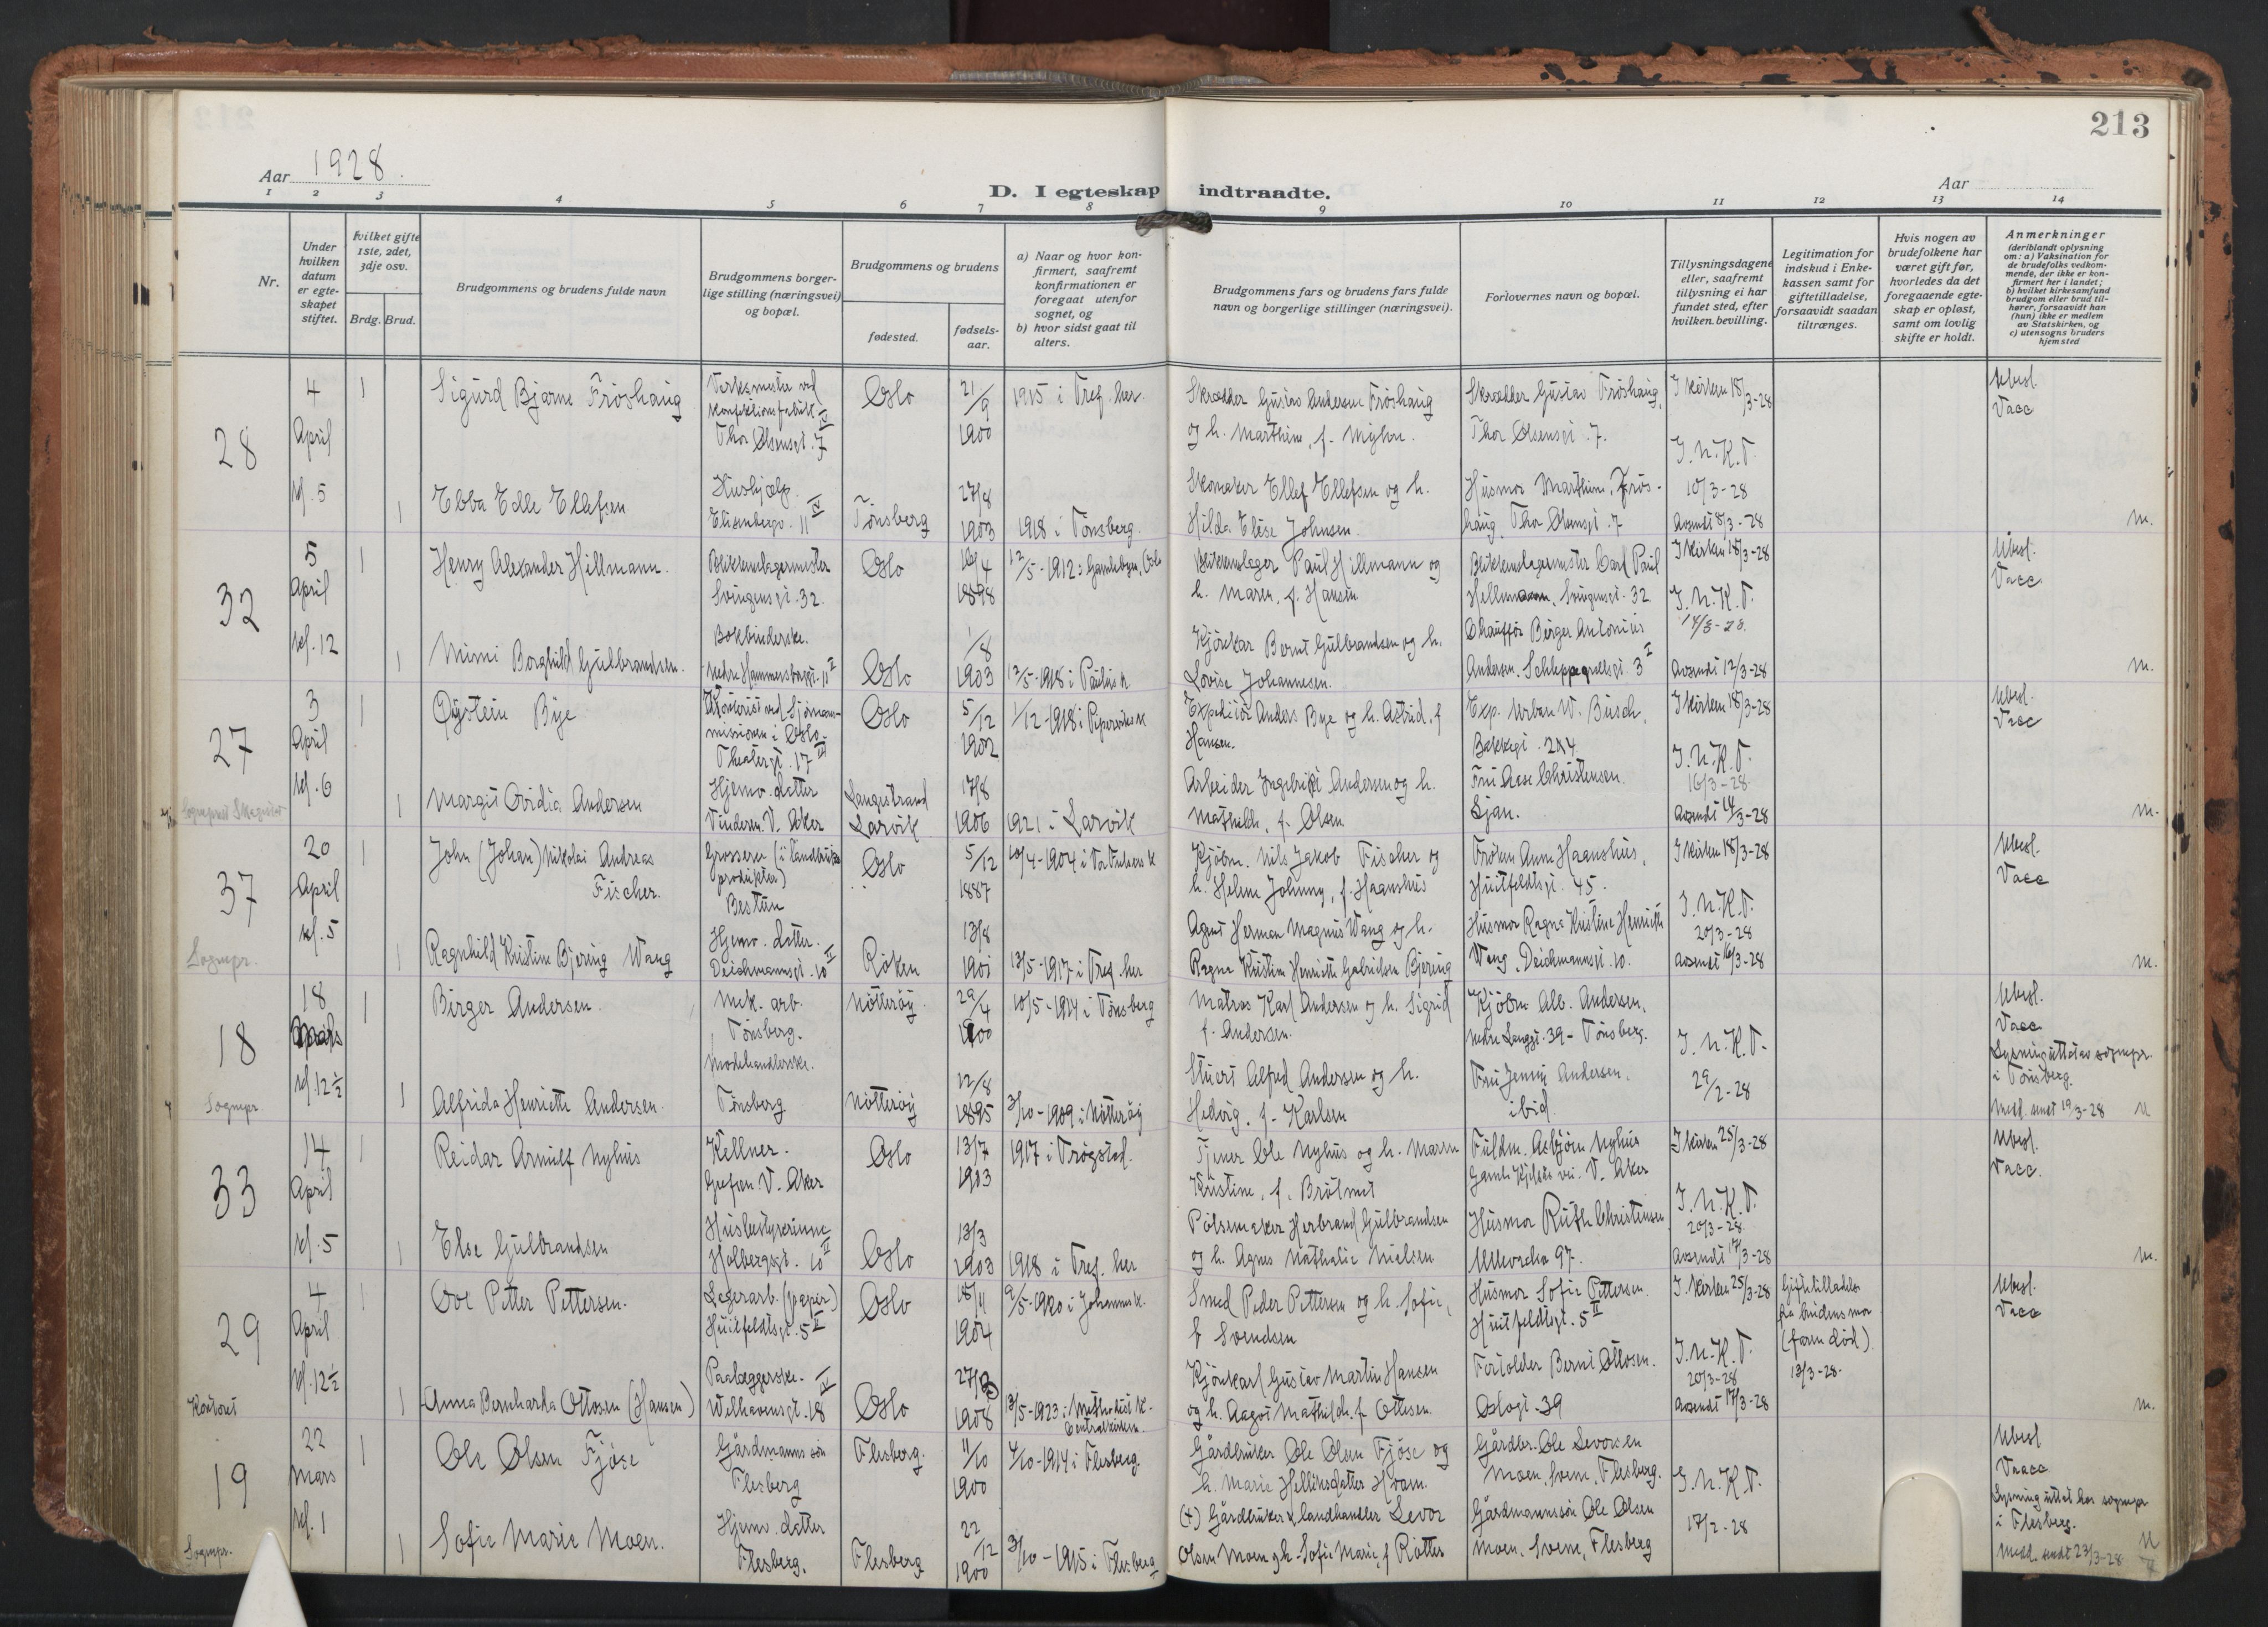 213
Aar 1928.
D. I egteskap indtraadte.
Aar
1 2 3 4 5 6 7 8 9 10 11 12 13 14
Nr.
Under hvilken datum er egteskapet stiftet.
Hvilket gifte 1ste, 2det, 3dje osv.
Brdg. Brud.
Brudgommens og brudens fulde navn
Brudgommens borgerlige stilling (næringsvei) og bopæl.
Brudgommens og brudens
fødested.
fødselsaar.
a) Naar og hvor konfirmert, saafremt konfirmationen er foregaat utenfor sognet, og
b) hvor sidst gaat til alters.
Brudgommens fars og brudens fars fulde navn og borgerlige stillinger (næringsvei).
Forlovernes navn og bopæl.
Tillysningsdagene eller, saafremt tillysning ei har fundet sted, efter hvilken bevilling.
Legitimation for indskud i Enkekassen samt for giftetilladelse, forsaavidt saadan tiltrænges.
Hvis nogen av brudefolkene har været gift før, hvorledes da det foregaaende egteskap er opløst, samt om lovlig skifte er holdt.
Anmerkninger (deriblandt oplysning om: a) Vaksination for de brudefolks vedkommende, der ikke er konfirmert her i landet; b) hvilket kirkesamfund brudgom eller brud tilhører, forsaavidt han (hun) ikke er medlem av Statskirken, og c) utensogns bruders hjemsted
28
4 April kl. 5
1 Sigurd Bjarne Fröshaug
Verksmester ved Konfektionsfabrik Thor Olsensgt. 7 IV
Oslo
21/9 1900
1915 i Tref. her.
Skrædder Gustav Andersen Fröshaug og h. Marthine, f. Myhre.
Skrædder Gustav Fröshaug, Thor Olsensgt. 7.
I kirken 18/3-28
I.N.K.T.
Ubesl. Vacc
1 Ebba Edle Ellefsen
Hushjælp. Elisenbergv. 11 IV
Tönsberg
27/8 1903
1918 i Tönsberg.
Skomaker Ellef Ellefsen og h. Hilda Elise Johnsen.
Husmor Marthine Fröshaug, Thor Olsensgt. 7
10/3-28
Avsendt 8/3-28
m.
32
5 April kl. 12
1 Henry Alexander Hillmann.
Blikkenslagermester Svingensgt. 32.
Oslo
16/4 1898
12/5-1912 i Gamlebyen, Oslo
Blikkenslager Paul Hillmann og h. Maren, f. Hansen
Blikkenslagermester Carl Paul Hellmann, Svingensgt. 32
I kirken 18/3-28
I.N.K.T.
Ubesl. Vacc
1 Mimi Borghild Gulbrandsen.
Bokbinderske. Nedre Hammersborggt. 11 I
Oslo
1/8 1903
12/5-1918 i Paulus k
Kjörekar Bernt Gulbrandsen og h. Lovise Johannesen.
Chauffør Birger Antonius Andersen. Schleppegrellsgt. 3 I
14/3-28.
Avsendt 12/3-28
m.
27
3 April kl. 6
1 Öystein Bye
Kontorist ved Sjömannsmissionen i Oslo. Theatergt. 17 III
Oslo
5/12 1902
1/12-1918 i Pipervikens k
Expeditör Anders Bye og h. Astrid, f Hansen.
Exp. Urban W. Busch, Bakkegt.
I kirken 18/3-28
I.N.K.T.
Ubesl. Vacc
1 Margit Ovidia Andersen
Hjemv. datter Vinderen. V. Aker
Langestrand Larvik
17/8 1906
1921 i Larvik
Arbeider Ingebrigt Andersen og h. Mathilde, f. Olsen
Fru Aase Christensen. Ljan.
16/3-28
Avsendt 14/3-28
m.
37
20 April kl. 5
Sognepr.
1 John (Johan) Nikolai Andreas Fischer.
Grosserer (i landbruksprodukter) Bestun
Oslo
5/12 1887
10/4-1904 i Vor Frelsers k
Kjöbm. Nils Jakob Fischer og h. Helene Johanne, f. Haanshus
Fröken Anna Haanshus, Huitfeldtsgt. 45.
I kirken 18/3-28
I.N.K.T.
Ubesl. Vacc
1 Ragnhild Kristine Bjering Wang
Hjemv. datter. Deichmannsgt. 10 II
Röken
13/8 1901
13/5-1917 i Tref. her
Agent Herman Magnus Wang og h. Ragna Kristine Henriette Gabrielsen Bjering
Husmor Ragna Kristine Henriette Wang, Deichmannsgt. 10.
20/3-28
Avsendt 16/3-28
m.
18
18 Mars kl 12½
Sognepr.
1 Birger Andersen.
Mek. arb. Tönsberg.
Nötteröy
29/4 1900
10/5-1914 i Tönsberg
Matros Karl Andersen og h. Sigrid f. Andersen.
Kjöbm Alb. Andersen, Nedre Langgt. 39 - Tönsberg.
I.N.K.T.
Ubesl. Vacc
Lysning uttat av sognepr. i Tönsberg.
1 Alfrida Henriette Andersen.
Modehandlerske. Tönsberg
Nötteröy
12/8 1895
3/10-1909 i Nötteröy
Stuert Alfred Andersen og h. Hedvig, f. Karlsen
Fru Jenny Andersen, ibid.
29/2-28
Medd. sendt 19/3-28
33
14 April kl. 5
1 Reidar Arnulf Nyhus
Kellner. Grefsen V. Aker
Oslo
13/7 1903
1917 i Trögstad.
Tjener Ole Nyhus og h. Maren Kristine, f. Brötmet
Fuldm. Asbjörn Nyhus Gamle Kjelsås vei. V. Aker
I kirken 25/3-28
I.N.K.T.
Ubesl. Vacc.
1 Else Gulbrandsen
Husbestyrerinne Holbergsgt. 10 II
Oslo
13/3 1903
1918 i Tref. her
Pölsemaker Herbrand Gulbrandsen og h. Agnes Nathalie Nielsen
Husmor Ruth Christensen Ullevoldsv 97.
20/3-28.
Avsendt 17/3-28
m.
29
4 April kl. 12½
Kontoret
1 Ove Petter Pettersen.
Lagerarb. (papir) Huitfeldtsgt. 5 II
Oslo
18/11 1904
9/5-1920 i Johannes k.
Smed Peder Pettersen og h. Sofie, f Svendsen
Husmor Sofie Pettersen Huitfeldtsgt. 5 II
I. kirken 25/3-28
I.N.K.T.
Giftetilladelse fra brudens mor (farn död). 13/3-28.
Ubesl. Vacc
1 Anna Bernharda Ottosen (Hansen)
Paalæggerske. Welhavensgt. 18 IV
Oslo
1908
13/5-1923 i Methodist k. Centralkirken.
Kjörekarl Gustav Martin Hansen og h. Aagot Mathilde, f Ottesen
Forlolder Bernt Ottosen. Oslogt. 39
20/3-28
Avsendt 17/3-28
m.
19
22 Mars kl. 1
Sognepr.
1 Ole Olsen Fjöse
Gårdmanns sön Flesberg
Flesberg.
11/10 1900
4/10-1914 i Flesberg.
Gårdbruker Ole Olsen Fjöse og h. Marie Helliksdatter Hvam.
Gårdbr. Ole Levorsen Moen, Svene, Flesberg.
I.N.K.T.
Ubesl Vacc
Lysning uttat hos sognepr i Flesberg.
1 Sofie Marie Moen.
Hjemv. datter Flesberg.
Flesberg
22/12 1900
3/10-1915 i Flesberg
(+) Gårdbruker & landhandler Levor Olsen Moen og h. Sofie Marie, f Rötter
Gårdmannssön Ole Olsen Moen, Svene, Flesberg
17/2-28
Medd. sendt 23/3-28